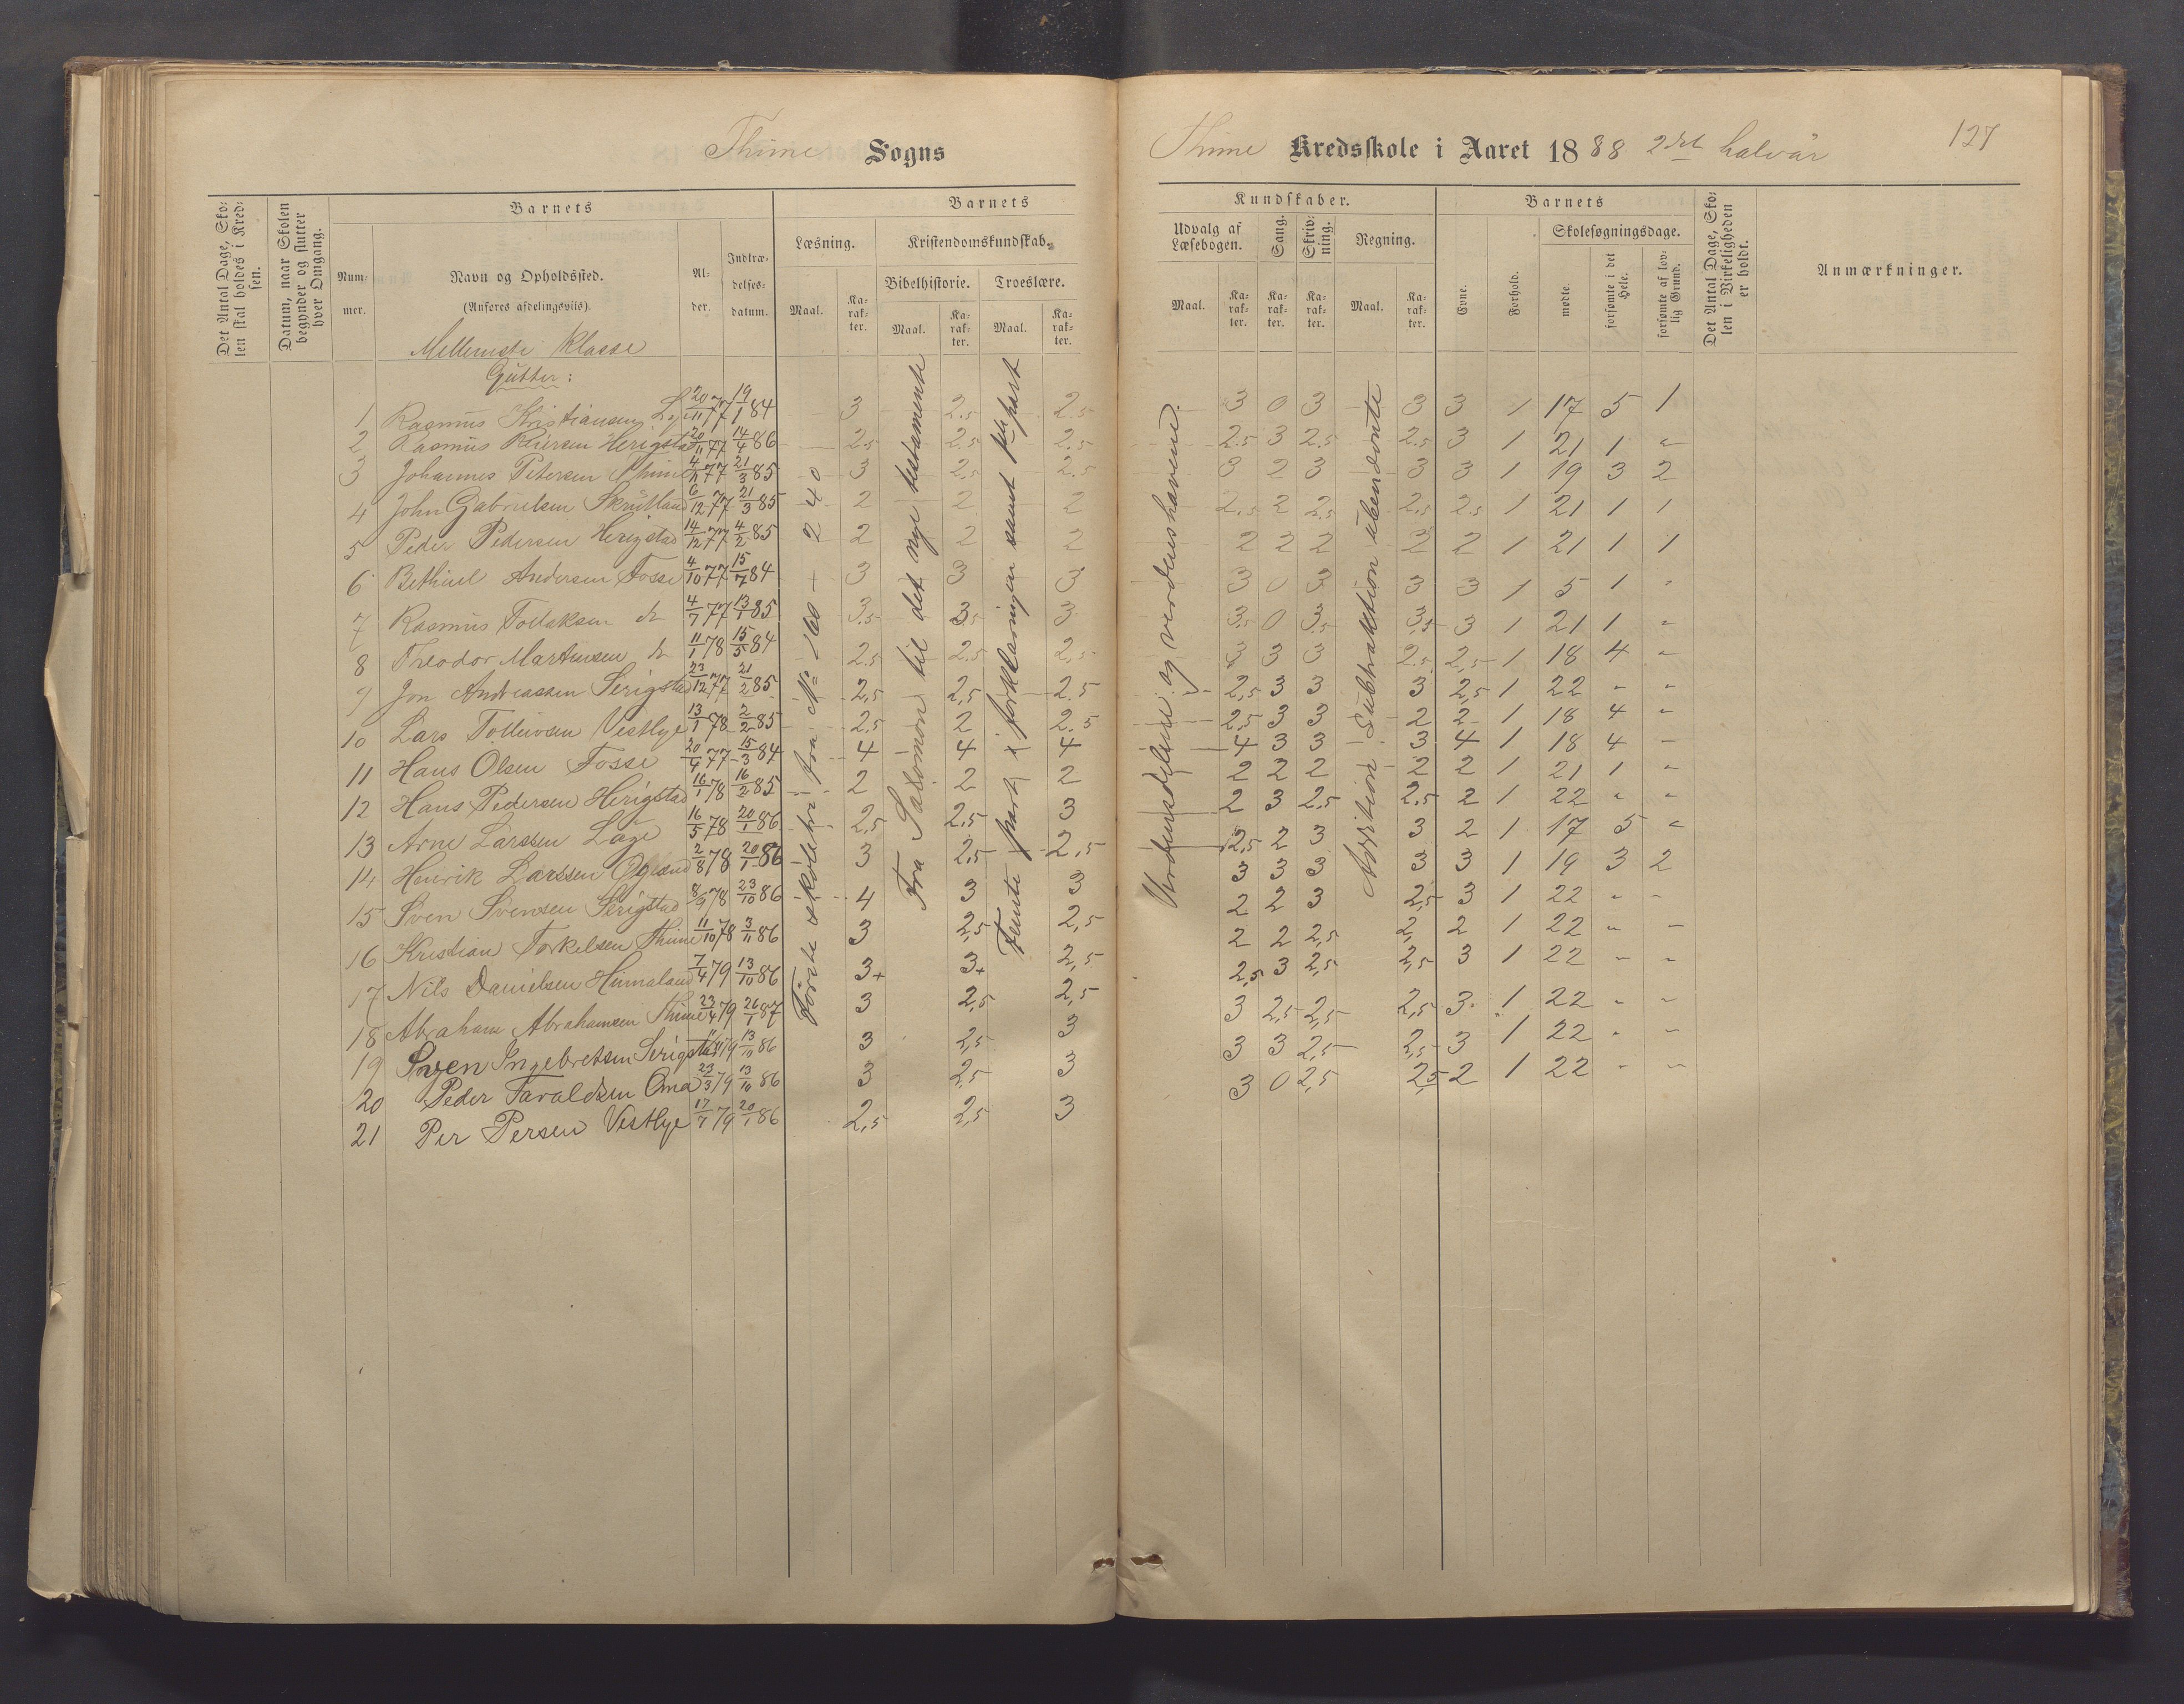 Thime Sogns
Thime Kredsskole i Aaret 1888 2det halvår 127
Det Antal Dage, Sko-
len skal holdes i Kred-
sen.
Datum, naar Skolen
begynder og slutter
hver Omgang.
Barnets
Num-
mer.
Navn og Opholdssted.
(Anføres afdelingsviis).
Al-
der.
Indtræ-
delses-
datum.
Barnets
Læsning.
Maal.
Ka-
rak-
ter.
Kristendomskundskab.
Bibelhistorie.
Maal.
Ka-
rak-
ter.
Troeslære.
Maal.
Ka-
rak-
ter.
Kundskaber.
Udvalg af
Læsebogen.
Maal.
Ka-
rak-
ter.
Sang.
Ka-
rak-
ter.
Skriv-
ning.
Ka-
rak-
ter.
Regning.
Maal.
Ka-
rak-
ter.
Barnets
Evne.
Forhold.
Skolesøgningsdage.
mødte.
forsømte i det
Hele.
forsømte af lov-
lig Grund.
Det Antal Dage, Sko-
len i Virkeligheden
er holdt.
Anmærkninger.
Mellemste Klasse
Gutter:
Første skoletri fra № 160 - 240
Fra Salomon til det nye testamente
Femte part i forklaringen samt part
Verdensdelene og verdenshavene.
Addition Subtraktion ubenævnte
1 Rasmus Kristiansen Lye 20/11 77 19/1 84 3 2.5 2.5 3 0 3 3 3 1 17 5 1
2 Rasmus Reiersen Herigstad 20/11 77 14/4 86 2.5 2.5 2.5 2.5 3 2.5 2.5 3 1 21 1 "
3 Johannes Petersen Thime 4/11 77 21/3 85 3 2.5 2.5 3 2 3 3 3 1 19 3 2
4 John Gabrielsen Skrudland 6/12 77 21/3 85 2 2 2 2.5 2 2.5 2.5 2.5 1 21 1 1
5 Peder Pedersen Herigstad 14/12 77 4/2 85 2 2 2 2 2 2 2 2 1 21 1 1
6 Bethuel Andersen Fosse 4/10 77 15/7 84 3 3 3 3 0 3 3 3 1 5 1 "
7 Rasmus Tollaksen do 4/7 77 13/1 85 3.5 3.5 3 3.5 0 3.5 3.5 3 1 21 1 "
8 Theodor Martinsen do 11/1 78 15/5 84 2.5 2.5 2.5 3 3 3 2.5 2.5 1 18 4 "
9 Jon Andreassen Serigstad 23/12 77 21/2 85 2.5 2.5 2.5 2.5 3 3 3 2.5 1 22 " "
10 Lars Tolleivsen Vestlye 13/1 78 2/2 85 2.5 2 2.5 2.5 3 3 2 2 1 18 4 "
11 Hans Olsen Fosse 20/4 77 15/3 84 4 4 4 4 3 3 3 4 1 18 4 "
12 Hans Pedersen Herigstad 16/1 78 16/2 85 2 2 2 2 2 2 2 2 1 21 1 "
13 Arne Larssen Lage 16/5 78 20/1 86 2.5 2.5 3 2 3 2.5 2.5 2 1 22 " "
14 Henrik Larssen 2/8 78 20/1 86 3 2.5 2.5 2.5 2 3 3 2 1 17 5 "
15 Sven Svensen Serigstad 8/9 78 23/10 86 4 3 3 3 3 3 3 3 1 19 3 2
16 Kristian Torkelsen Thime 11/10 78 3/11 86 3 2,5 2,5 2 2 3 2,5 3 1 22 " "
17 Nils Danielsen Hinnaland 7/4 79 13/10 86 3+ 3+ 2,5 2 2 2,5 2, 2 1 22 " "
18 Abraham Abrahamsen Thime 23/4 79 26/1 87 3 2,5 2,5 2,5 3 2,5 2,5 3 1 22 " "
19 Sven Ingebretsen Serigstad 79 13/10 86 3 2,5 3 3 2,5 2,5 2,5 3 1 22 " "
20 Peder Taraldsen Oma 23/3 79 13/10 86 3 2,5 3 3 3 2,5 2,5 3 1 22 " "
21 Per Persen Vestlye 17/7 79 20/1 86 2,5 2,5 3 3 0 2,5 2,5 2 1 22 " "